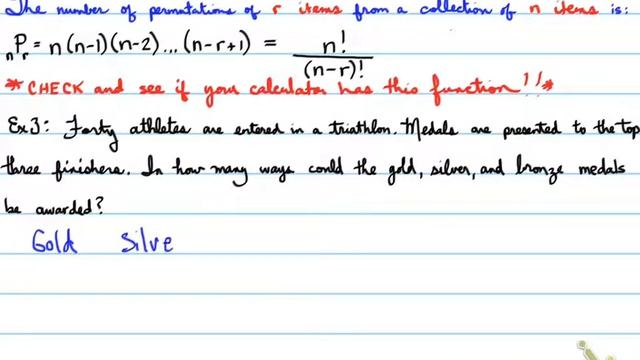 The number of permutations of r items from a collection of n items is:
nPr = n(n-1)(n-2)...(n-r+1) = n!/(n-r)!
*CHECK and see if your calculator has this function!!*
Ex3: Forty athletes are entered in a triathlon. Medals are presented to the top
three finishers. In how many ways could the gold, silver, and bronze medals
be awarded?
Gold Silve